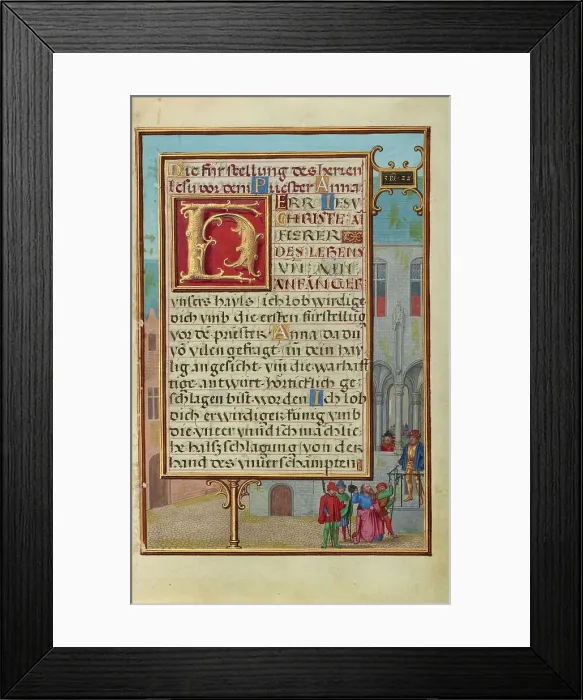 Die furstellung des herren
Jesu vor dem Priester Anna.
HERR JESV
CHRISTE AI
FIERER
DES LEBENS
VN AIN
ANFANGER
vnsers hayls ich lob wirdige
dich vmb die ersten furstellung
vor dē priester Anna da du
vō vilen gefragt in dein hay
lig angesicht vn die warhaff
tige antwurt hörticklich ge
schlagen bist worden Ich lob
dich erwirdiger künig vmb
die vneer vnd schmachlic
he halszschlagung von der
hand des vnuerschampten